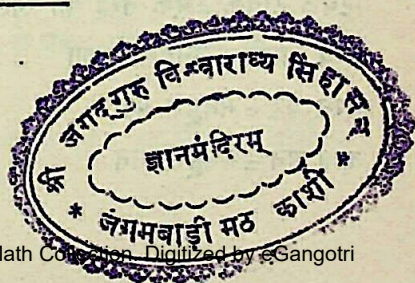 श्री जगद्गुरु विश्वाराध्य सिंहासन
ज्ञानमंदिरम्
* जंगमबाड़ी मठ काशी *
Math Collection. Digitized by eGangotri